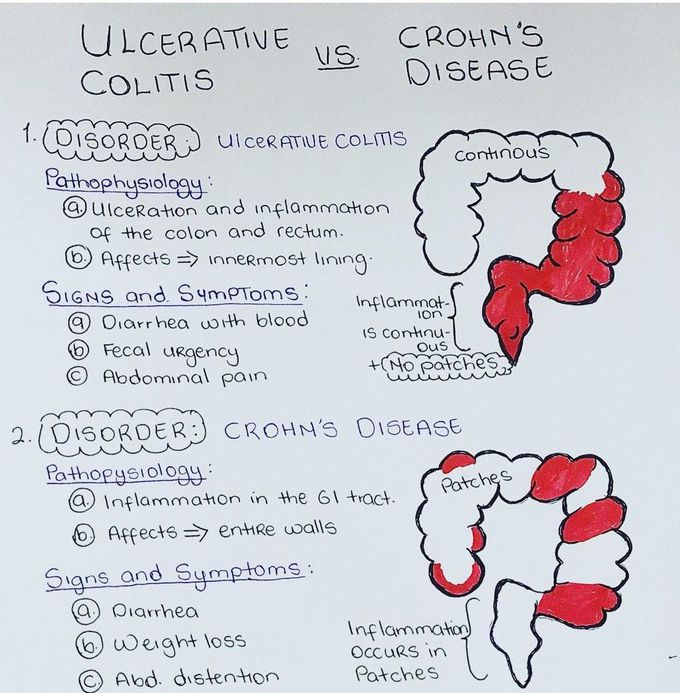 ULCERATIVE COLITIS VS. CROHN'S DISEASE
1. DISORDER: ULCERATIVE COLITIS
Pathophysiology:
a. Ulceration and inflammation
of the colon and rectum.
b. Affects ⇒ innermost lining.
Signs and Symptoms:
a Diarrhea with blood
b Fecal urgency
c Abdominal pain
continous
Inflammat-
ion
is continu-
ous
+ No patches
2. DISORDER: CROHN'S DISEASE
Pathopysiology:
a. Inflammation in the GI tract.
b. Affects ⇒ entire walls
Signs and Symptoms:
a. Diarrhea
b. Weight loss
c Abd. distention
Patches
Inflammation
occurs in
Patches